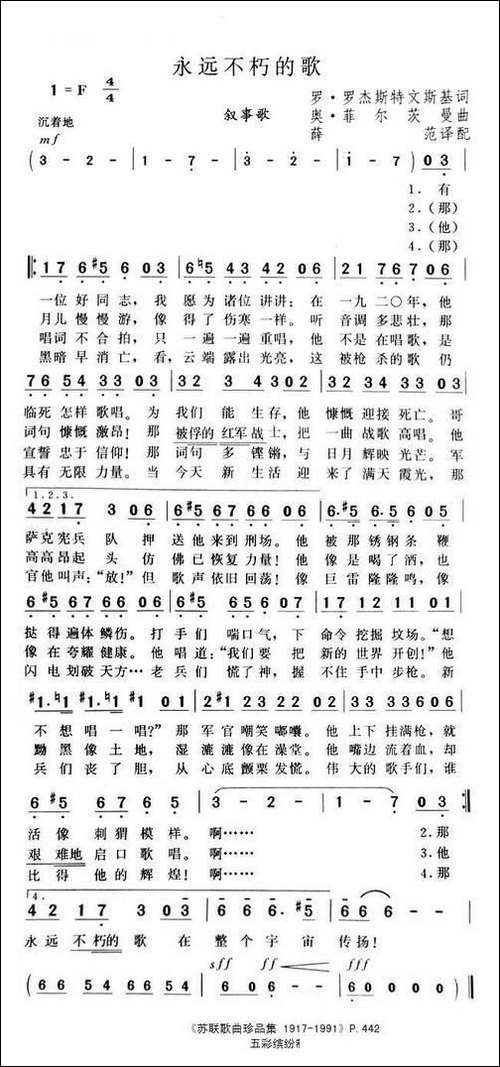 永远不朽的歌
1=F 4/4
叙事歌
罗·罗杰斯特文斯基词
奥·菲尔茨曼曲
薛 范译配
沉着地
mf
( 3 - 2 - | 1 - 7 - | 3 - 2 - | i - 7 - ) 0 3
1. 有
2.(那)
3.(他)
4.(那)
1 7 6 #5 6 0 3 | #6 ♮5 4 3 4 2 0 6 | 2 1 7 6 7 0 6
一位好同志，我 愿为诸位讲讲：在 一九二〇年，他
月儿慢慢游，像 得了伤寒一样。听 音调多悲壮，那
唱词不合拍，只 一遍一遍重唱，他 不是在唱歌，是
黑暗早消亡，看，云端露出光亮，这 被枪杀的歌仍
7 6 5 4 3 3 0 3 | 3 2 4 3 0 2 | 3 3 4 4 5 5 0 3
临死怎样歌唱。为 我们能生存，他 慷慨迎接死亡。哥
词句慷慨激昂！那 被俘的红军战士，把 一曲战歌高唱。他
宣誓忠于信仰！那 词句多铿锵，与 日月辉映光芒。军
具有无限力量。当 今天新生活迎 来了满天霞光，那
1.2.3.
4 2 1 7 3 0 6 | #5 6 7 6 6 7 0 6 | #5. 6 #5. 6 6 0 5
萨克宪兵队押 送他来到刑场。他 被那锈钢条鞭
高高昂起头仿 佛已恢复力量！他 像是喝了酒，也
官他叫声：“放！”但 歌声依旧回荡！像 巨雷隆隆鸣，像
挞得遍体鳞伤。打 手们喘口气，下 命令挖掘坟场。“想
像在夸耀健康。他 唱道：“我们要把 新的世界开创！”他
闪电划破天方…老 兵们慌了神，握 不住手中步枪。新
不想唱一唱？”那 军官嘲笑嘟囔。他 上下挂满枪，就
黝黑像土地，湿 漉漉像在澡堂。他 嘴边流着血，却
兵们丧了胆，从 心底颤栗发慌。伟 大的歌手们，谁
6 #5 6 7 6 5 | 6 7 6 - | 3 - 2 - | 1 - 7 0 3
活像刺猬模样。啊…… 2. 那
艰难地启口歌唱。啊…… 3. 他
比得他的辉煌！啊…… 4. 那
4.
永远不朽的歌在整个宇宙传扬！
sff ff fff
( 6 6 5 4 6 6 5 4 | 6 6 5 4 6 | 6 0 6 0 | 6 0 0 )
《苏联歌曲珍品集 1917-1991》P.442
五彩缤纷